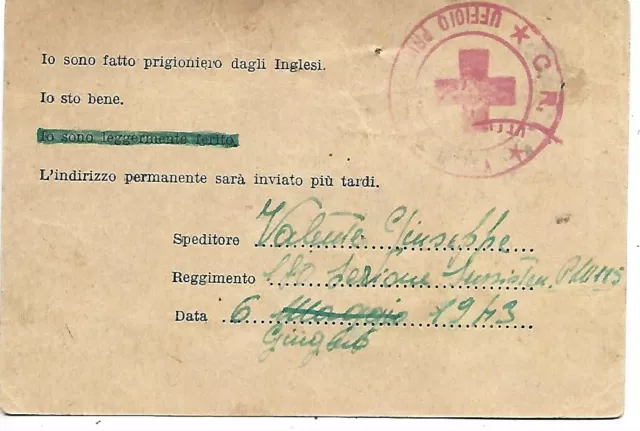 Io sono fatto prigioniero dagli Inglesi.
Io sto bene.
Io sono leggermente ferito
L'indirizzo permanente sarà inviato più tardi.
Speditore Valente Giuseppe
Reggimento 180 Sezione Sussisten.
Data 6 Maggio 1943
Giugno
★ C. R.
UFFICIO PRI